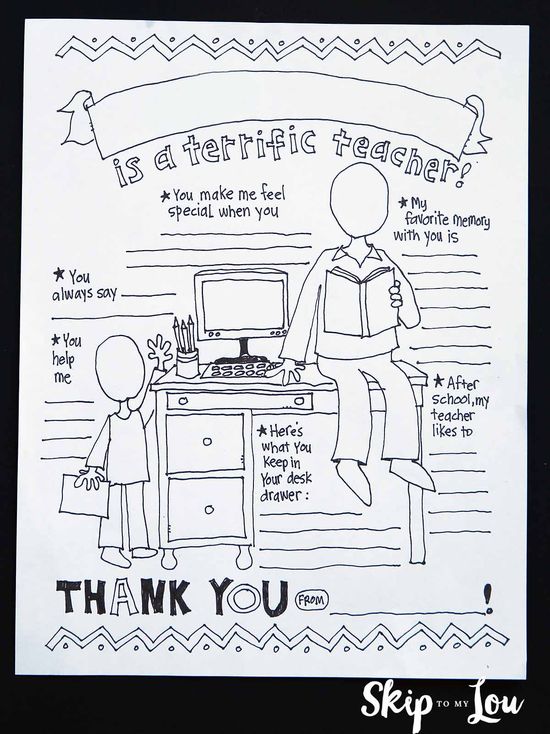 is a terrific teacher!
★You make me feel
special when you
★My
favorite memory
with you is
★You
always say
★You
help
me
★After
school, my
teacher
likes to
★Here's
what You
Keep in
Your desk
drawer:
THANK YOU FROM !
Skip TO MY Lou